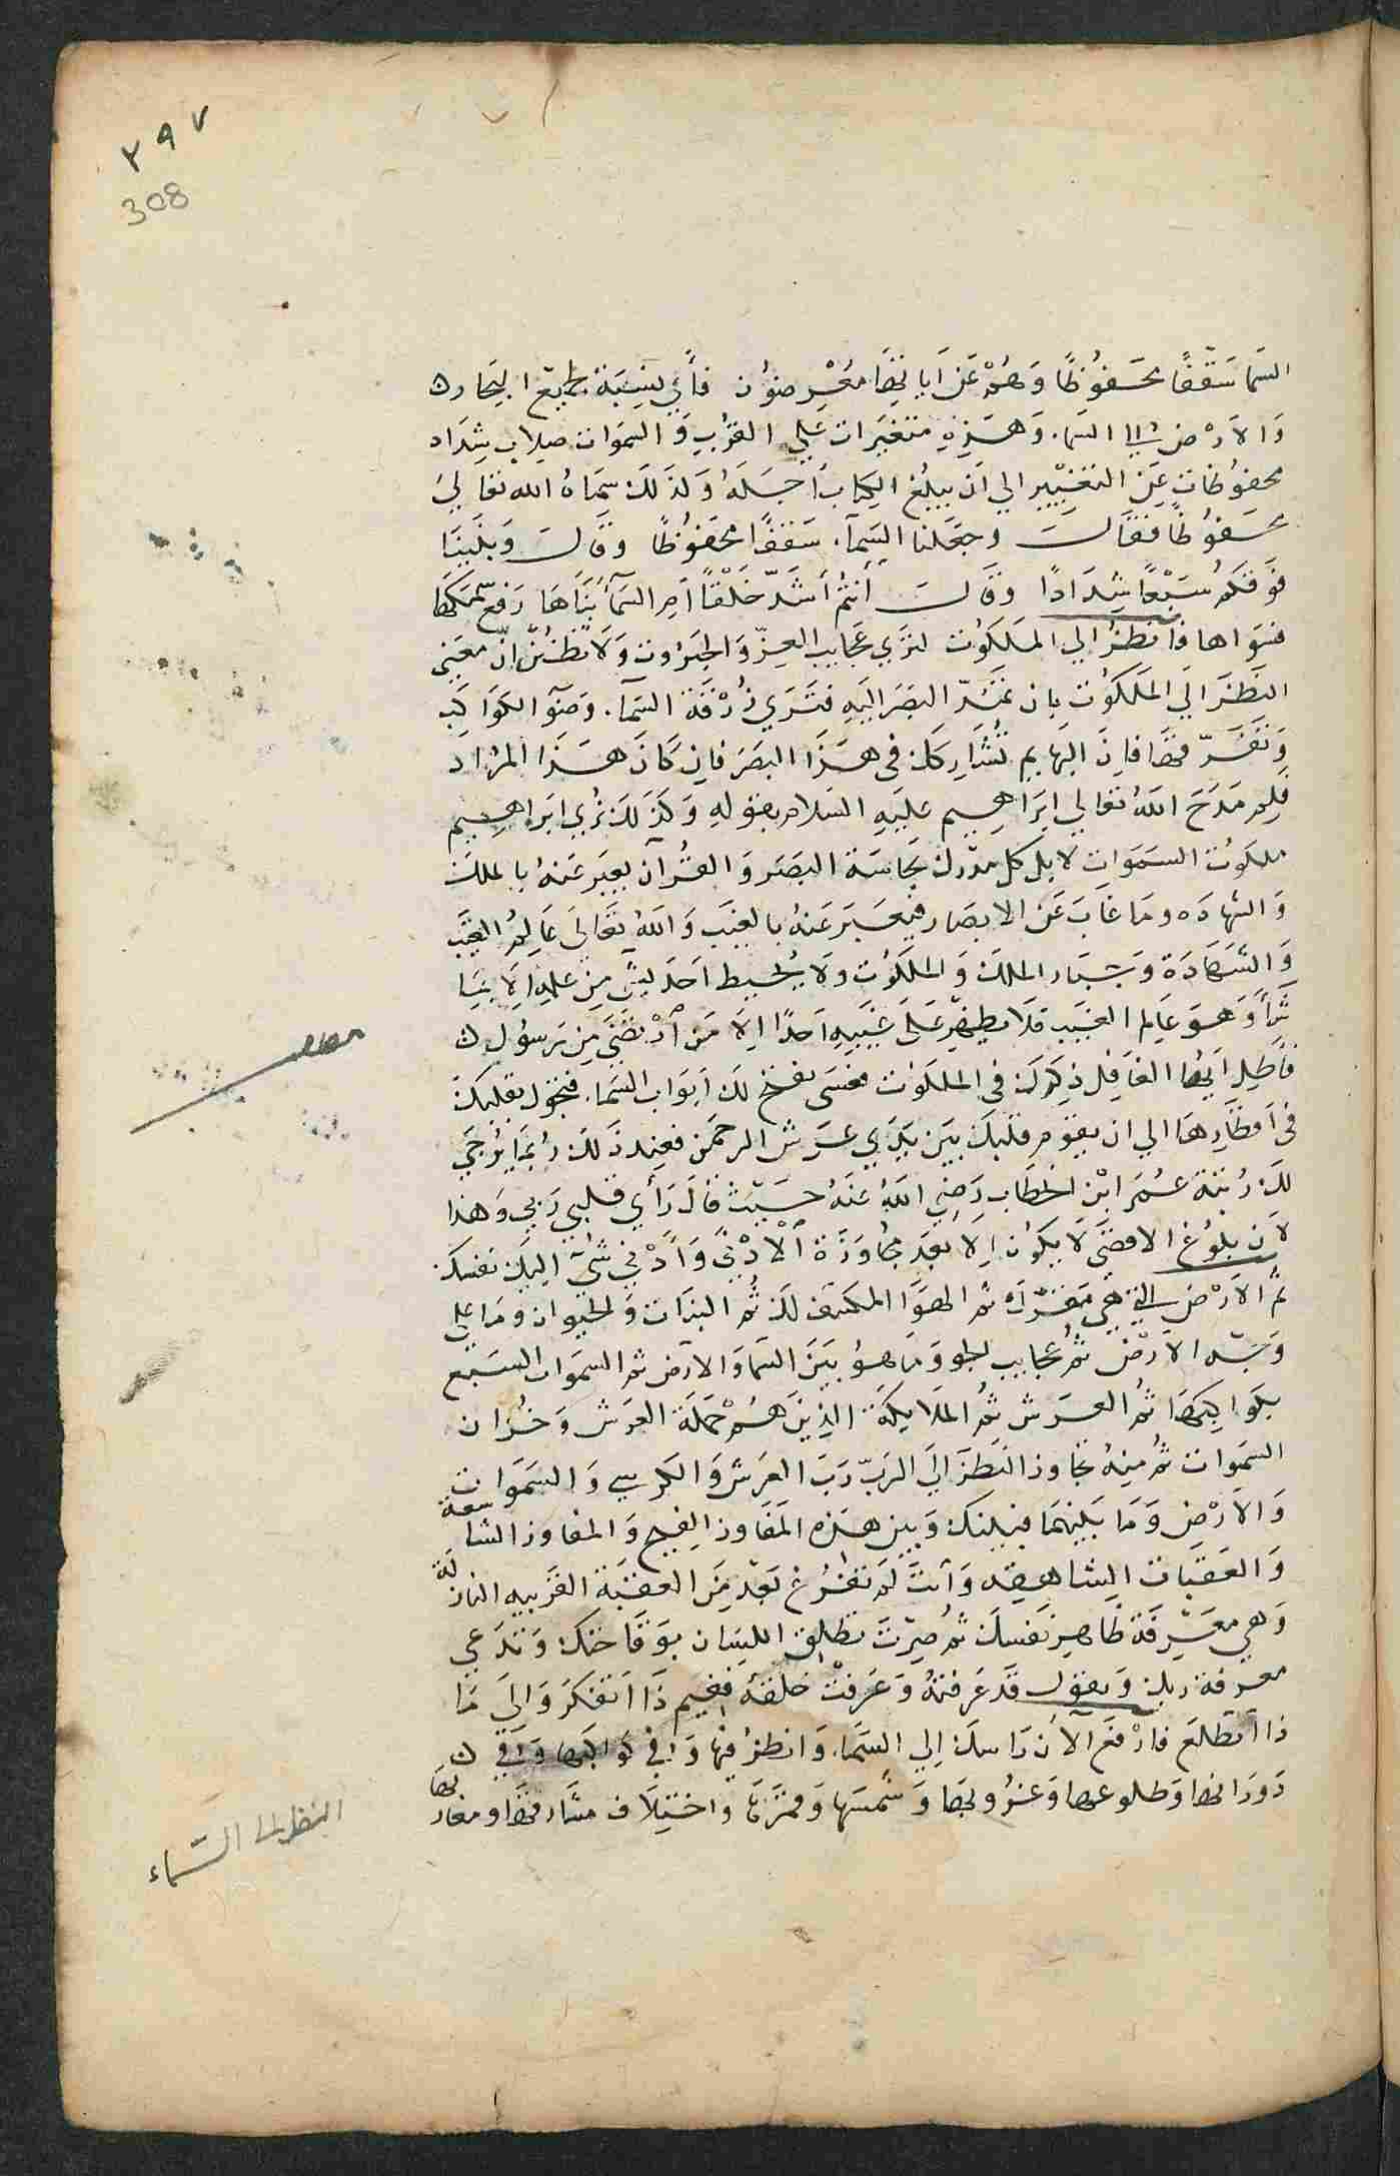 ٣٩٧
308
السما سقفا محفوظا وهم عن اياتها معرضون فأي نسبة لجميع البحار
والارض الى السما. وهذه متغيرات علي القرب والسموات صلاب شداد
محفوظات عن التغيير الي ان يبلغ الكتاب أجله ولذلك سماه الله تعالي
محفوظا فقال وجعلنا السمآ. سقفا محفوظا وقال وبنينا
فوقكم سبعا شدادا وقال أنتم أشد خلقا ام السمآ بناها رفع سمكها
فسواها فانظر الي الملكوت لتري عجايب العز والجبروت ولا تظنن ان معني
النظر الي الملكوت بان تمد البصر اليه فتري زرقة السمآ. وضوٓ الكواكب
وتفرقها فان البهايم تشاركك في هذا البصر فان كان هذا المراد
فلم مدح الله تعالي ابراهيم عليه السلام بقوله وكذلك نري ابراهيم
ملكوت السموات لا بل كل مدرك بحاسة البصر والقرآن يعبر عنه بالملك
والشهاده وما غاب عن الابصار فيعبر عنه بالغيب والله تعالى عالم الغيب
والشهادة وجبار الملك والملكوت ولا يحيط احد بشي من علمه الا بما
شأ وهو عالم الغيب فلا يظهر على غيبه احدا الا من ارتضى من رسول
فأطل ايها الغافل فكرك في الملكوت فعسى يفتح لك ابواب السما. فتجول بقلبك
في اقطارها الي ان يقوم قلبك بين يدي عرش الرحمن فعند ذلك ربما يرجي
لك رتبة عمر ابن الخطاب رضي الله عنه حيث قال رأي قلبي ربي وهذا
لان بلوغ الاقصى لا يكون الا بعد مجاوزة الادني وأدني شي اليك نفسك
ثم الارض التي هي مقرك ثم الهوا المكتنف لك ثم النبات والحيوان وما علي
وجه الارض ثم عجايب الجو وما هو بين السما والارض ثم السموات السبع
بكواكبها ثم العرش ثم الملايكة الذين هم حملة العرش وخزان
السموات ثم منه تجاوز النظر الي الرب رب العرش والكرسي والسموات
والارض وما بينهما فبينك وبين هذه المفاوز الفيح والمفاوز الشاسعة
والعقبات الشاهقه وانت لم تفرغ بعد من العقبة القريبه النازلة
وهي معرفة ظاهر نفسك ثم صرت تطلق اللسان بوقاحتك وتدعي
معرفة ربك وتقول قد عرفته وعرفت خلقه ففيم ذا اتفكر والي ما
ذا اتطلع فارفع الآن راسك الي السما. وانظر فيها وفي كواكبها وفي
دورانها وطلوعها وغروبها وشمسها وقمرها واختلاف مشارقها ومغاربها
مطلب
النظر الى السماء